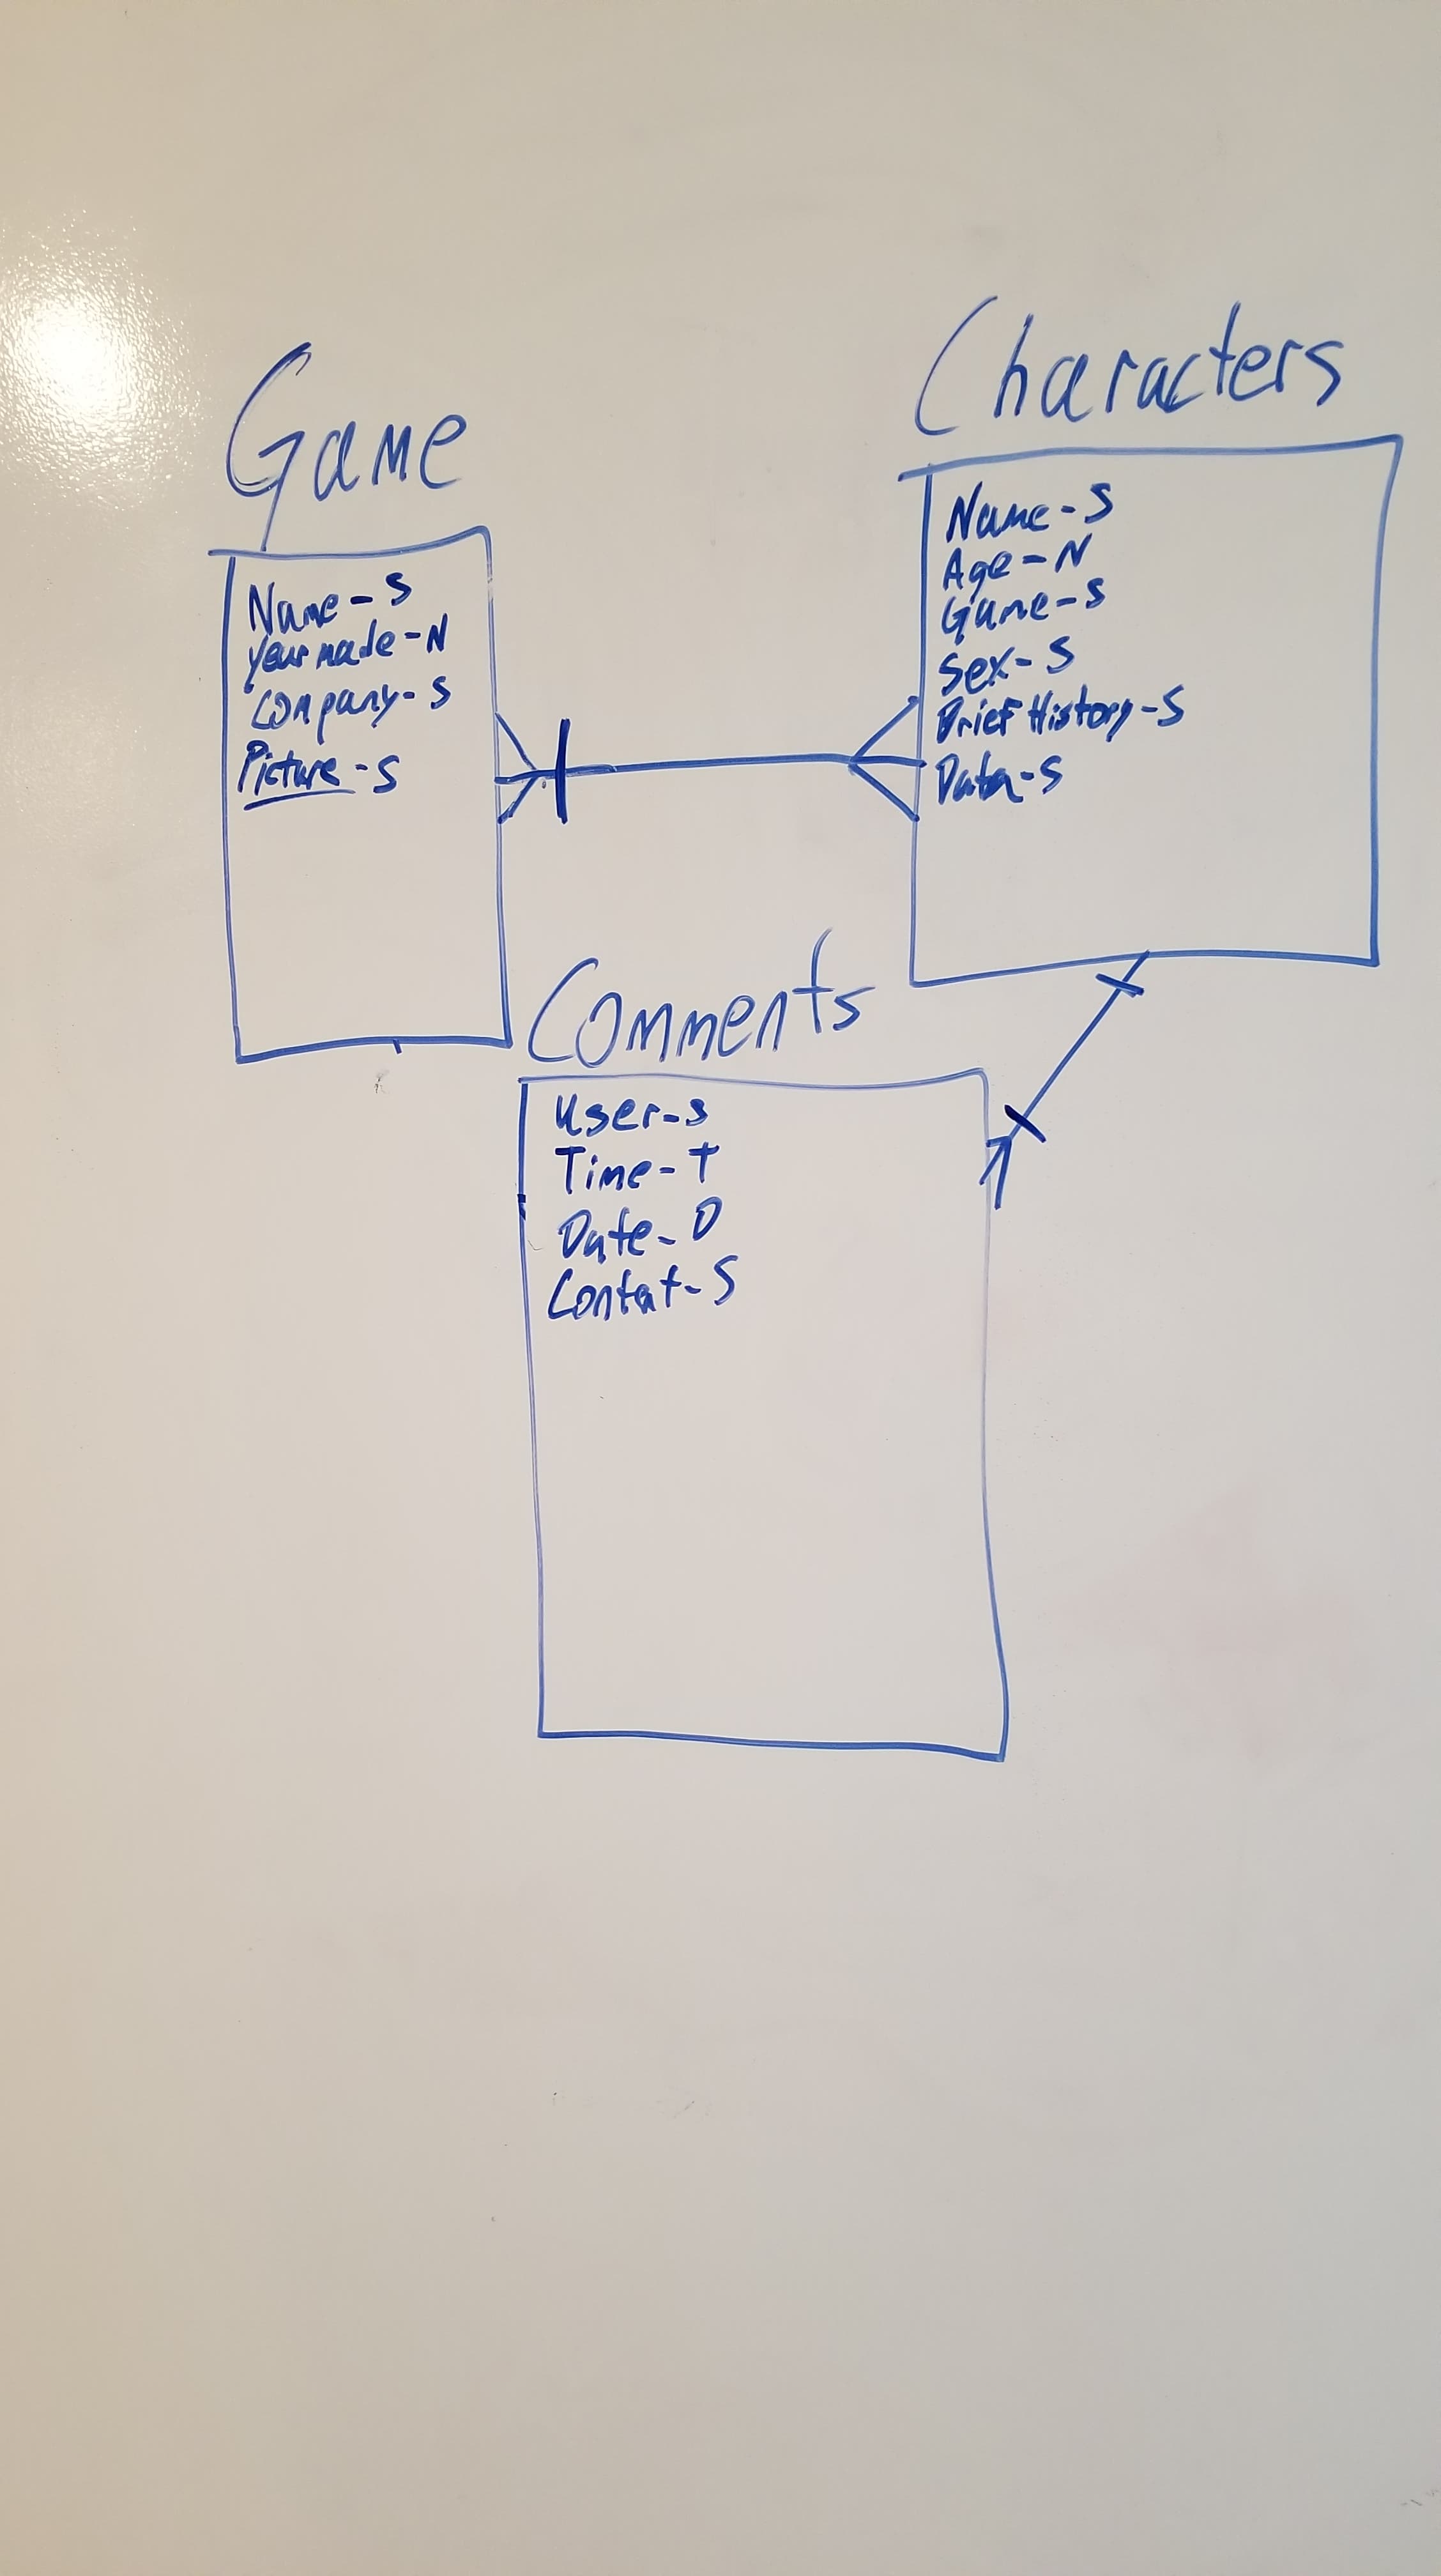 Game
Name - S
year made - N
Company - S
Picture - S
Characters
Name - S
Age - N
Game - S
Sex - S
Brief History - S
Data - S
Comments
User - S
Time - T
Date - D
Contat - S